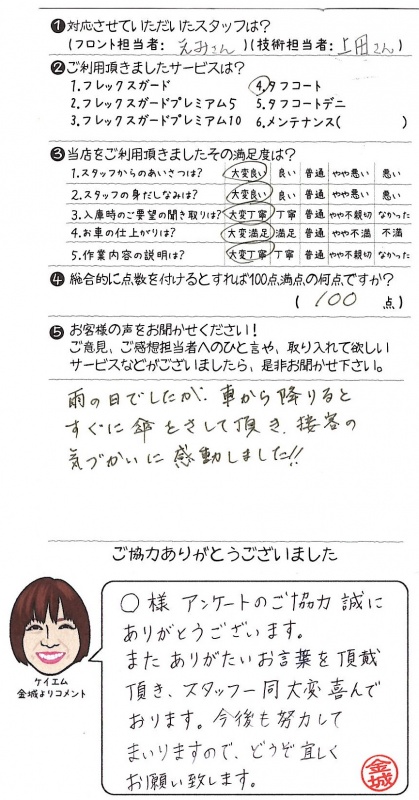 ❶対応させていただいたスタッフは?
(フロント担当者: えみさん)(技術担当者: 上田さん)
❷ご利用頂きましたサービスは?
1.フレックスガード 4.タフコート
2.フレックスガードプレミアム5 5.タフコートデニ
3.フレックスガードプレミアム10 6.メンテナンス( )
❸当店をご利用頂きましたその満足度は?
1.スタッフからのあいさつは? 大変良い 良い 普通 やや悪い 悪い
2.スタッフの身だしなみは? 大変良い 良い 普通 やや悪い 悪い
3.入庫時のご要望の聞き取りは? 大変丁寧 丁寧 普通 やや不親切 なかった
4.お車の仕上がりは? 大変満足 満足 普通 やや不満 不満
5.作業内容の説明は? 大変丁寧 丁寧 普通 やや不親切 なかった
❹総合的に点数を付けるとすれば100点満点の何点ですか?
( 100 点)
❺お客様の声をお聞かせください!
ご意見、ご感想担当者へのひと言や、取り入れて欲しい
サービスなどがございましたら、是非お聞かせ下さい。
雨の日でしたが、車から降りると
すぐに傘をさして頂き、接客の
気づかいに感動しました!!
ご協力ありがとうございました
〇様 アンケートのご協力 誠に
ありがとうございます。
また ありがたいお言葉を頂戴
頂き、スタッフ一同大変喜んで
おります。今後も努力して
まいりますので、どうぞ宜しく
お願い致します。
ケイエム
金城よりコメント
金城